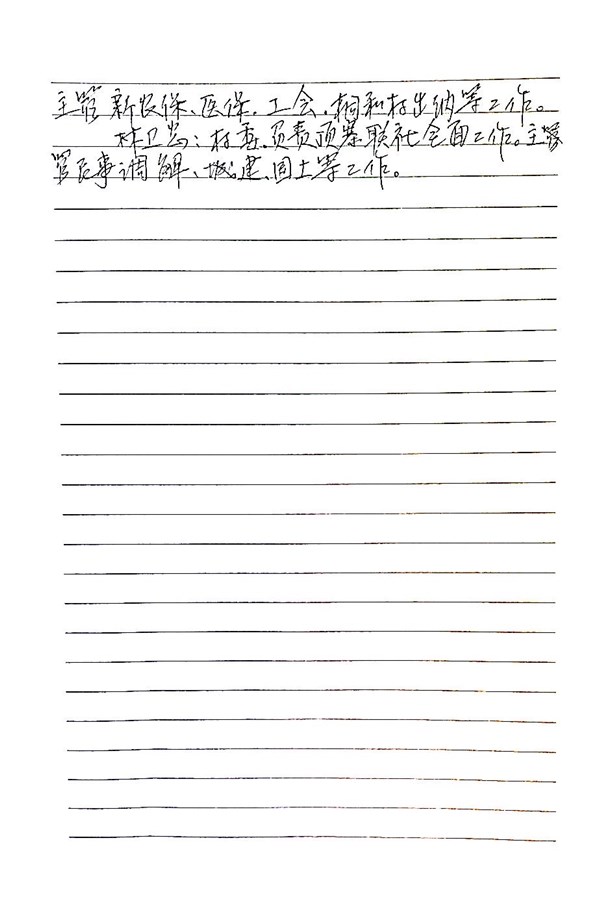 主管新农保、医保、工会、桐和村出纳等工作。
林卫당：村委，负责顶寨联社全面工作。主管
管民事调解、城建、国土等工作。